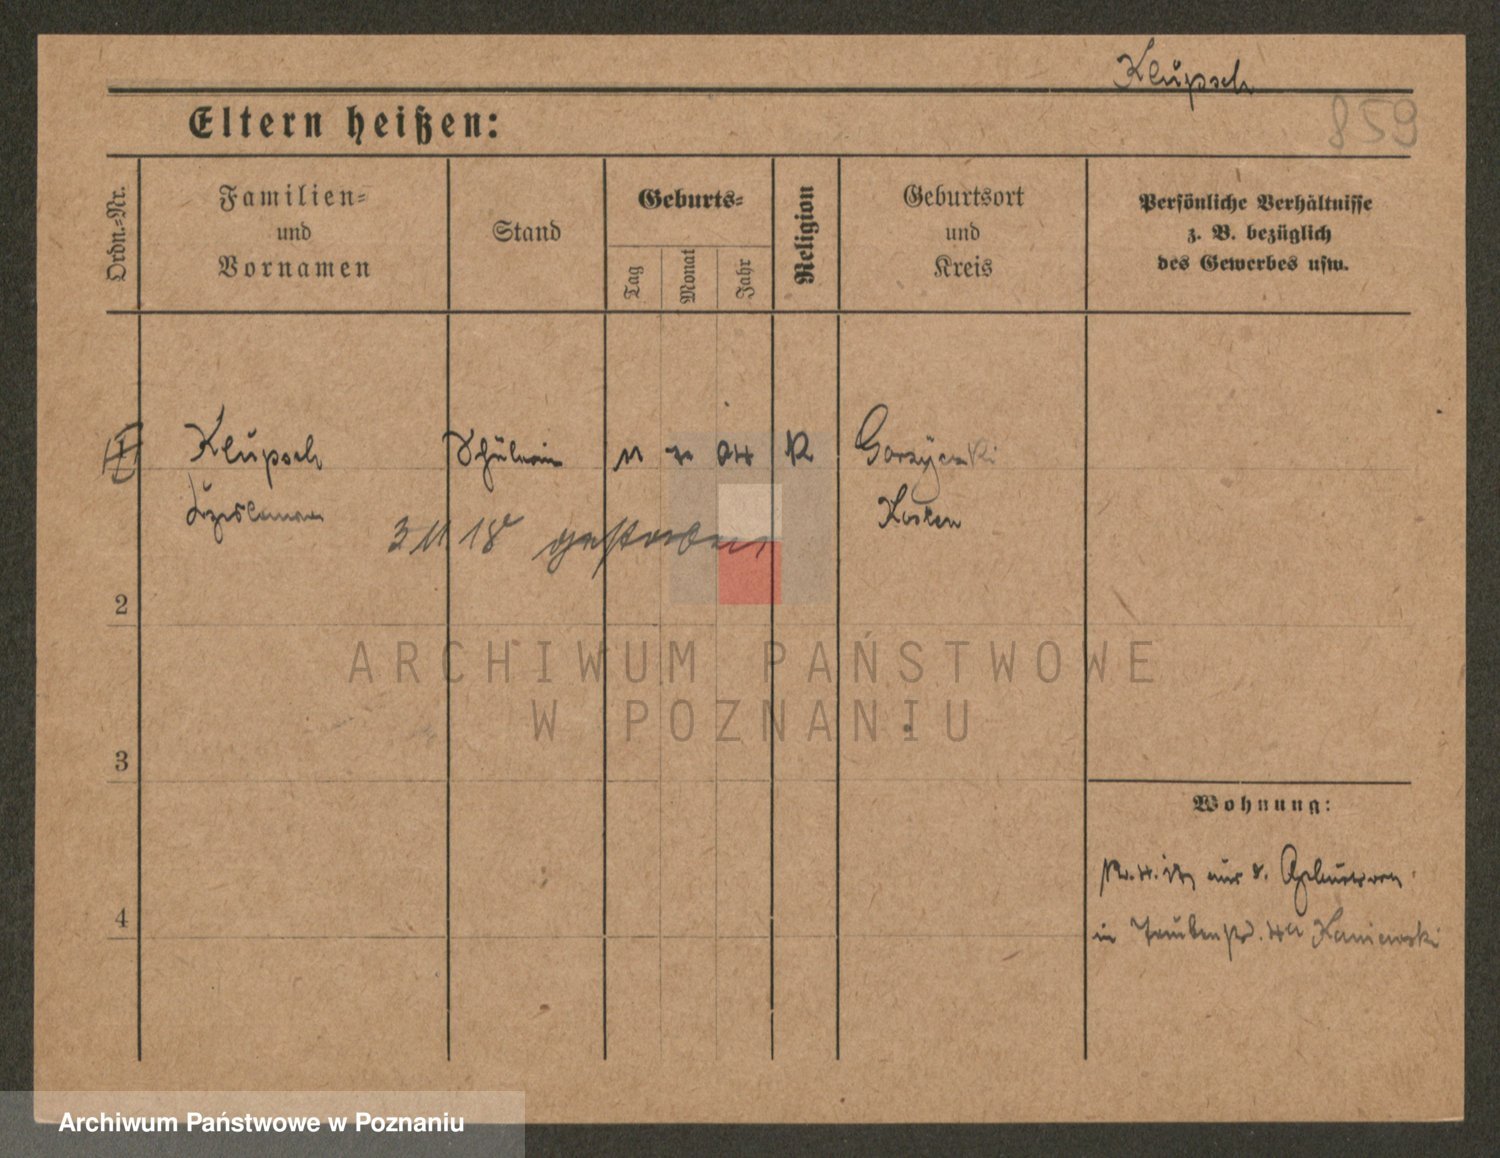 Klupsch
859
Eltern heißen:
Ordn.-Nr.
Familien-
und
Vornamen
Stand
Geburts-
Tag
Monat
Jahr
Religion
Geburtsort
und
Kreis
Persönliche Verhältnisse
z. B. bezüglich
des Gewerbes usw.
1 Klupsch Schülerin K
Kosten
3 11 18 gestorben
2
3
4
Wohnung:
in Kaniewski
ARCHIWUM PAŃSTWOWE
W POZNANIU
Archiwum Państwowe w Poznaniu